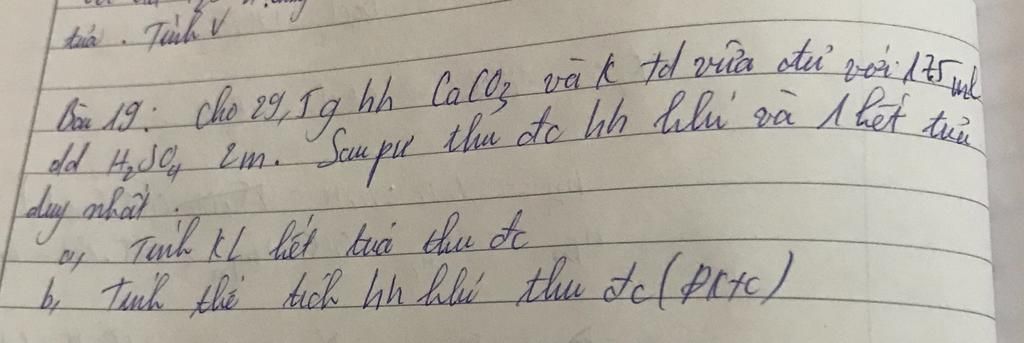 tủa. Tính V
Bài 19: Cho 29,5g hh CaCO3 và K td vừa đủ với 175ml
dd H2SO4 2M. Sau pư thu đc hh khí và 1 kết tủa
duy nhất.
a, Tính KL kết tủa thu đc
b, Tính thể tích hh khí thu đc (đktc)